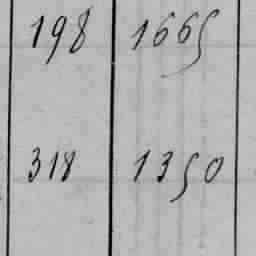 198 1665
318 1350